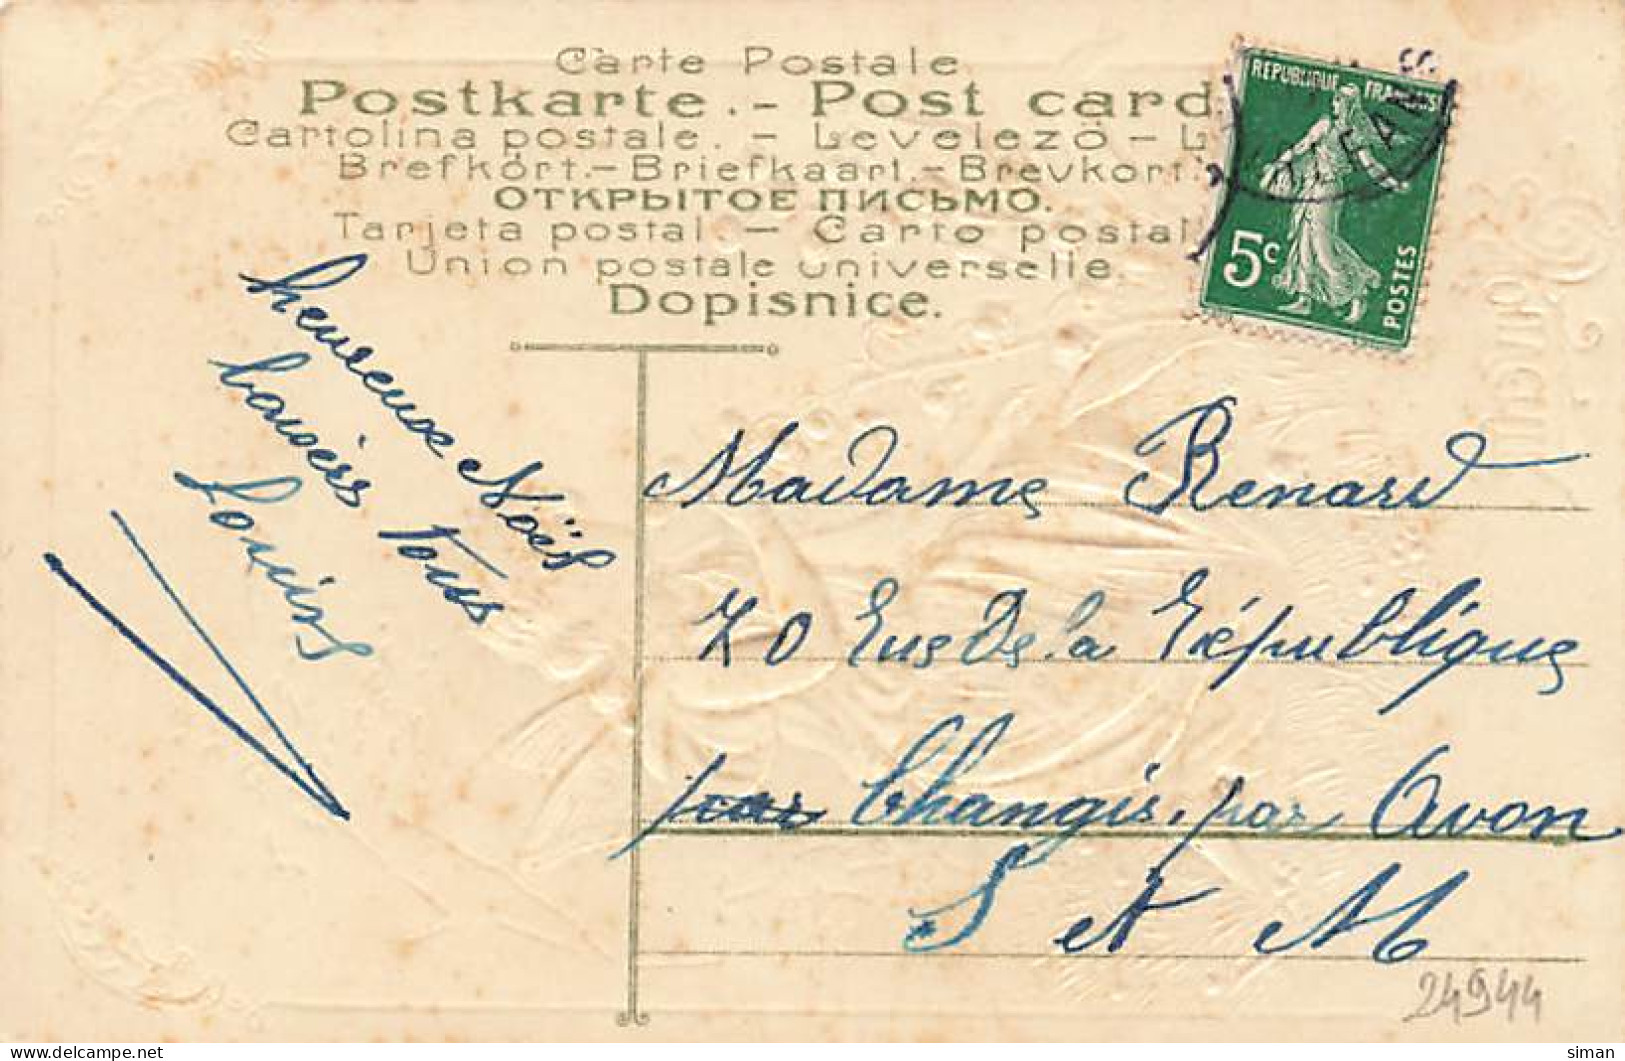 Carte Postale
Postkarte. - Post card
Cartolina postale. - Levelezö - L
Brefkort. - Briefkaart. - Brevkort
ОТКРЫТОЕ ПИСЬМО.
Tarjeta postal. - Carto postal
Union postale universelle.
Dopisnice.
REPUBLIQUE FRANCAISE
5c
POSTES
heureuse Noël
baisers tous
Madame Renard
70 Rue De la République
par Changis. par Avon
S et M
24944
Delcampe.net
siman